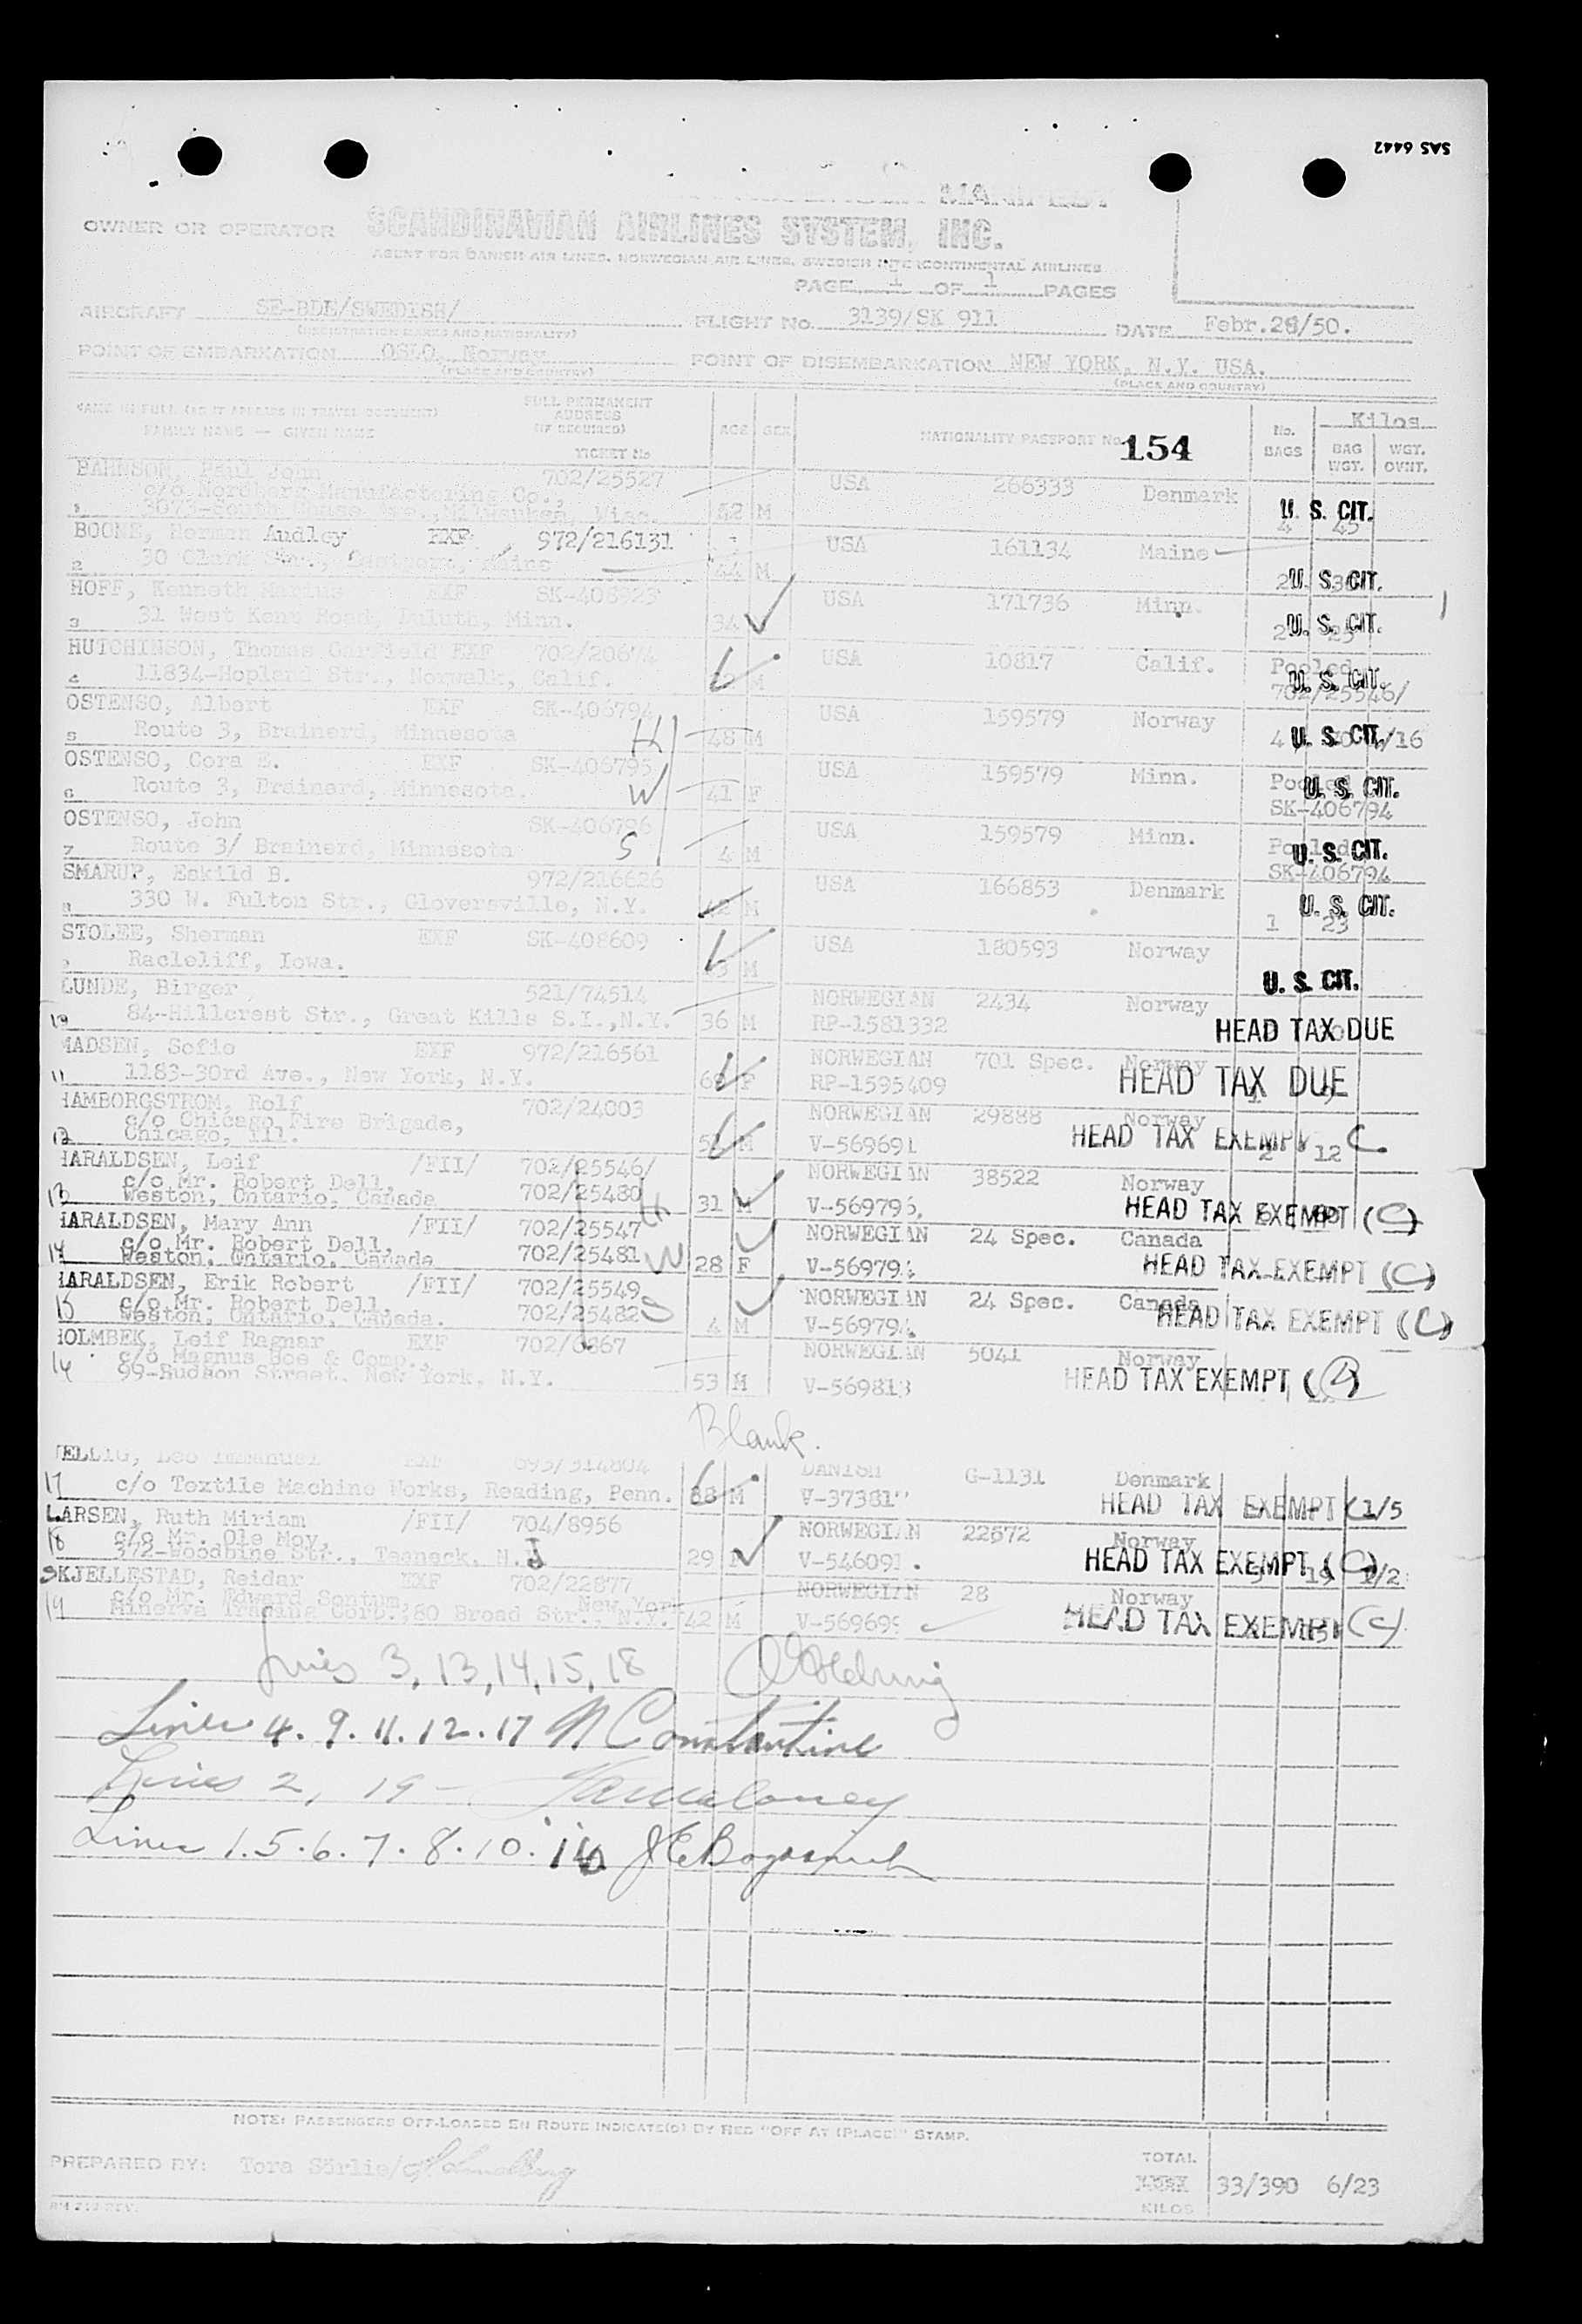 SAS 6442
MANIFEST
OWNER OR OPERATOR SCANDINAVIAN AIRLINES SYSTEM, INC.
AGENT FOR DANISH AIR LINES, NORWEGIAN AIR LINES, SWEDISH INTERCONTINENTAL AIRLINES
PAGE 1 OF 1 PAGES
AIRCRAFT SE-BDE/SWEDISH/ FLIGHT No. 3139/SK 911 DATE Febr.28/50.
(REGISTRATION MARKS AND NATIONALITY)
POINT OF EMBARKATION OSLO, Norway POINT OF DISEMBARKATION NEW YORK, N.Y. USA.
(PLACE AND COUNTRY) (PLACE AND COUNTRY)
NAME IN FULL (AS IT APPEARS IN TRAVEL DOCUMENT) FULL PERMANENT ADDRESS (IF REQUIRED) AGE SEX NATIONALITY PASSPORT No. 154 No. BAGS Kilos
FAMILY NAME — GIVEN NAME TICKET No BAG WGT. WGT. OVNT.
BAHNSON, Paul John 702/25527 USA 266333 Denmark
c/o Nordberg Manufacturing Co.,
1 3073-South Chase Ave., Milwaukee, Wisc. 42 M U. S. CIT. 4 45
BOONE, Herman Audley EXF 972/216131 USA 161134 Maine
2 30 Clark Str., Eastport, Maine 44 M U. S. CIT.
HOFF, Kenneth Marius EXF SK-408923 USA 171736 Minn.
3 31 West Kent Road, Duluth, Minn. 34 U. S. CIT.
HUTCHINSON, Thomas Garfield EXF USA 10817 Calif. Pooled
4 11834-Hopland Str., Norwalk, Calif. M U. S. CIT. 702/25546/
OSTENSO, Albert EXF SK-406794 USA 159579 Norway
5 Route 3, Brainerd, Minnesota H 48 M 4 U. S. CIT. /16
OSTENSO, Cora E. EXF SK-406795 USA 159579 Minn. Pooled
6 Route 3, Brainerd, Minnesota. W 41 F U. S. CIT. SK-406794
OSTENSO, John SK-406796 USA 159579 Minn. Pooled
7 Route 3/ Brainerd, Minnesota S 4 M U. S. CIT. SK-406794
SMARUP, Eskild B. 972/216626 USA 166853 Denmark
8 330 W. Fulton Str., Gloversville, N.Y. 42 M U. S. CIT. 1 23
STOLEE, Sherman EXF SK-408609 USA 180593 Norway
9 Racleliff, Iowa. M U. S. CIT.
LUNDE, Birger 521/74514 NORWEGIAN 2434 Norway
10 84-Hillcrest Str., Great Kills S.I.,N.Y. 36 M RP-1581332 HEAD TAX DUE
MADSEN, Sofie EXF 972/216561 NORWEGIAN 701 Spec. Norway
11 1183-30rd Ave., New York, N.Y. F RP-1595409 HEAD TAX DUE
HAMBORGSTROM, Rolf 702/24003 NORWEGIAN 29888 Norway
c/o Chicago Fire Brigade,
12 Chicago, Ill. M V-569691 HEAD TAX EXEMPT C 2 12
HARALDSEN, Leif /FII/ 702/25546/ NORWEGIAN 38522 Norway
c/o Mr. Robert Dell, 702/25480
13 Weston, Ontario, Canada H 31 M V-569796. HEAD TAX EXEMPT (C)
HARALDSEN, Mary Ann /FII/ 702/25547 NORWEGIAN 24 Spec. Canada
c/o Mr. Robert Dell, 702/25481
14 Weston, Ontario, Canada W 28 F V-56979 HEAD TAX EXEMPT (C)
HARALDSEN, Erik Robert /FII/ 702/25549 NORWEGIAN 24 Spec. Canada
c/o Mr. Robert Dell, 702/25482
15 Weston, Ontario, Canada. S 4 M V-56979 HEAD TAX EXEMPT (C)
HOLMBEK, Leif Ragnar EXF 702/6867 NORWEGIAN 5041 Norway
c/o Magnus Boe & Comp.,
16 99-Hudson Street, New York, N.Y. 53 M V-569813 HEAD TAX EXEMPT
Blank.
Leo Immanuel EXF 695/314804 DANISH G-1131 Denmark
17 c/o Textile Machine Works, Reading, Penn. 38 M V-37381 HEAD TAX EXEMPT (1/5
LARSEN, Ruth Miriam /FII/ 704/8956 NORWEGIAN 22672 Norway
c/o Mr. Ole Moy,
18 372-Woodbine Str., Teaneck, N.J 29 V-546091. HEAD TAX EXEMPT (C) 19 1/2
SKJELLESTAD, Reidar EXF 702/22877 NORWEGIAN 28 Norway
c/o Mr. Edward Sontum, New York
19 Minerva Trading Corp.,80 Broad Str., N.Y. 42 M V-56969 HEAD TAX EXEMPT (C)
Lines 3, 13, 14, 15, 18
Lines 4. 9. 11. 12. 17 N Constantine
Lines 2, 19 - Maloney
Lines 1. 5. 6. 7. 8. 10. 16
NOTE: PASSENGERS OFF-LOADED EN ROUTE INDICATE(D) BY RED "OFF AT (PLACE)" STAMP.
PREPARED BY: Tora Sörlie/ TOTAL 33/390 6/23
KILOS